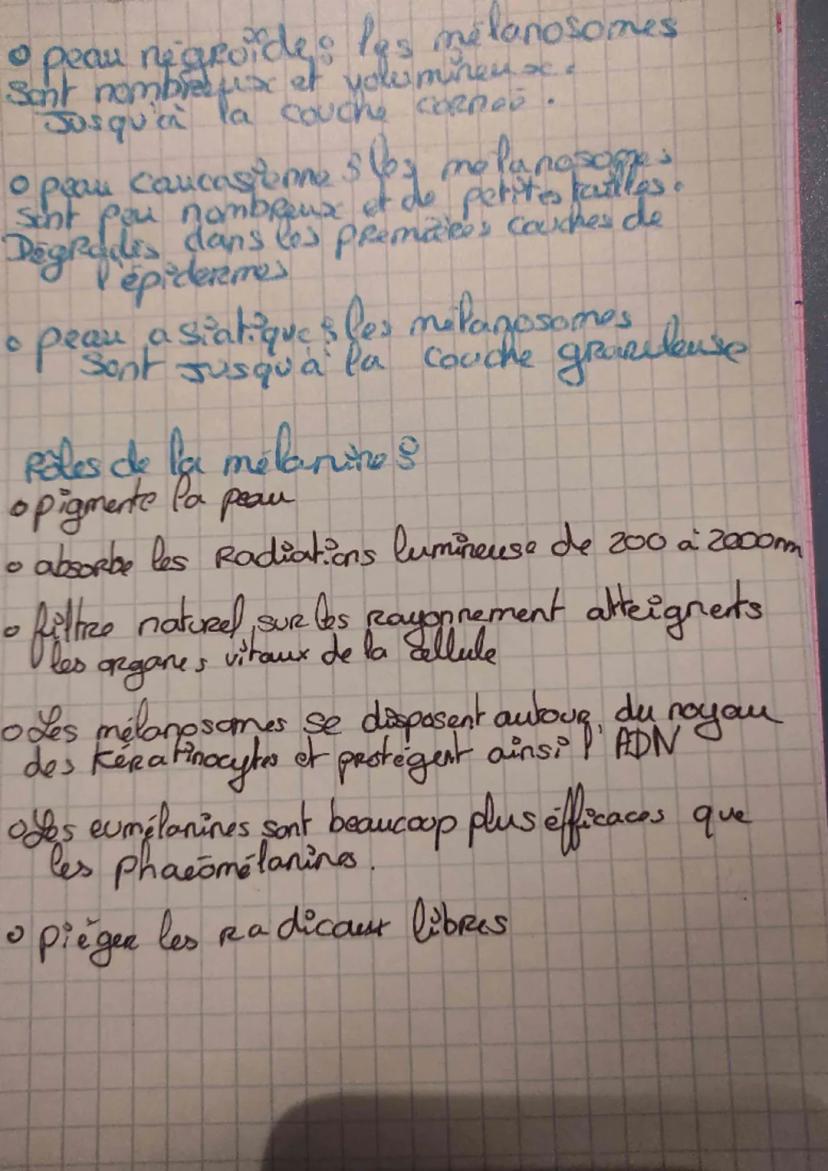 o peau négroïde : les mélanosomes
sont nombreux et volumineux.
Jusqu'à la couche cornée.
o peau caucasienne : les mélanosomes
sont peu nombreux et de petites tailles.
Dégradés dans les premières couches de
l'épidermes
o peau asiatique : les mélanosomes
sont jusqu'à la couche granuleuse
Rôles de la mélanine :
o pigmente la peau
o absorbe les Radiations lumineuse de 200 à 2000nm
o filtre naturel sur les rayonnement atteignents
les organes vitaux de la cellule
o Les mélanosomes se disposent autour du noyau
des kératinocytes et protègent ainsi l'ADN
o Les eumélanines sont beaucoup plus éfficaces que
les phaeomélanines.
o pièger les radicaux libres